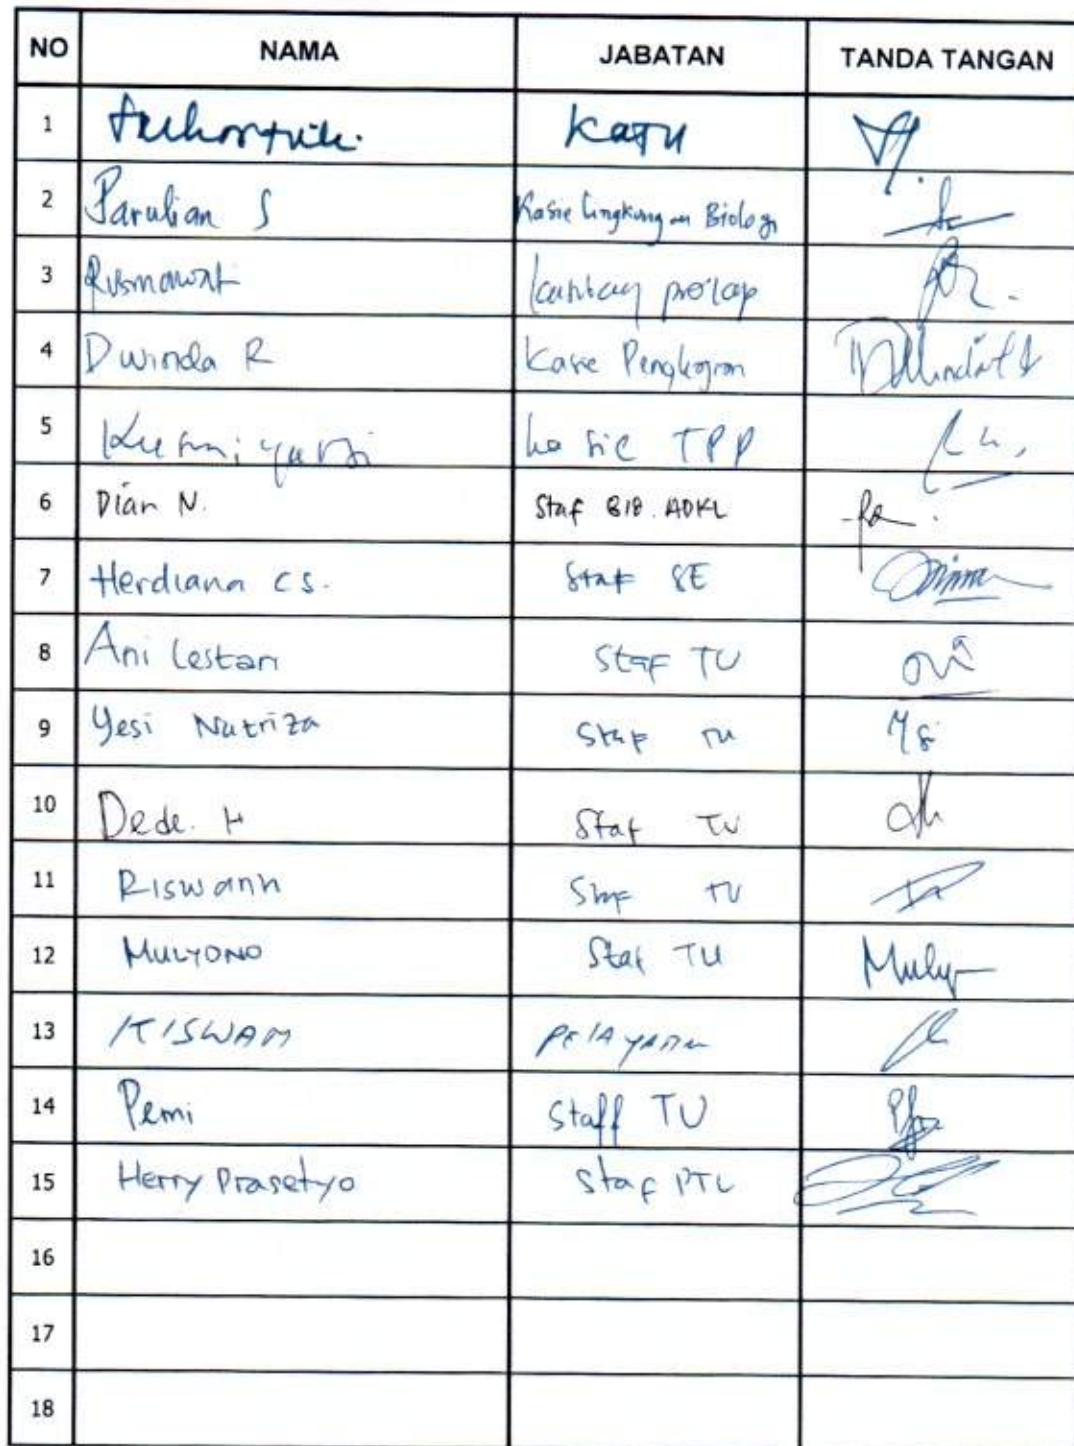 NO NAMA JABATAN TANDA TANGAN
1 KATU
2 Parulian S Kasie Lingkungan Biologi
3 Rismawati
4 Dwinda R Kasie
5 Kasie TPP
6 Dian N. Staf BIO. ADKL
7 Herdiana CS. Staf SE
8 Ani Lestari Staf TU
9 Yesi Nutriza Staf TU
10 Dede. H Staf TU
11 Riswann Staf TU
12 MULYONO Staf TU Muly
13 KISWAM PELAYANAN
14 Pemi Staff TU
15 Herry Prasetyo Staf PTL
16
17
18